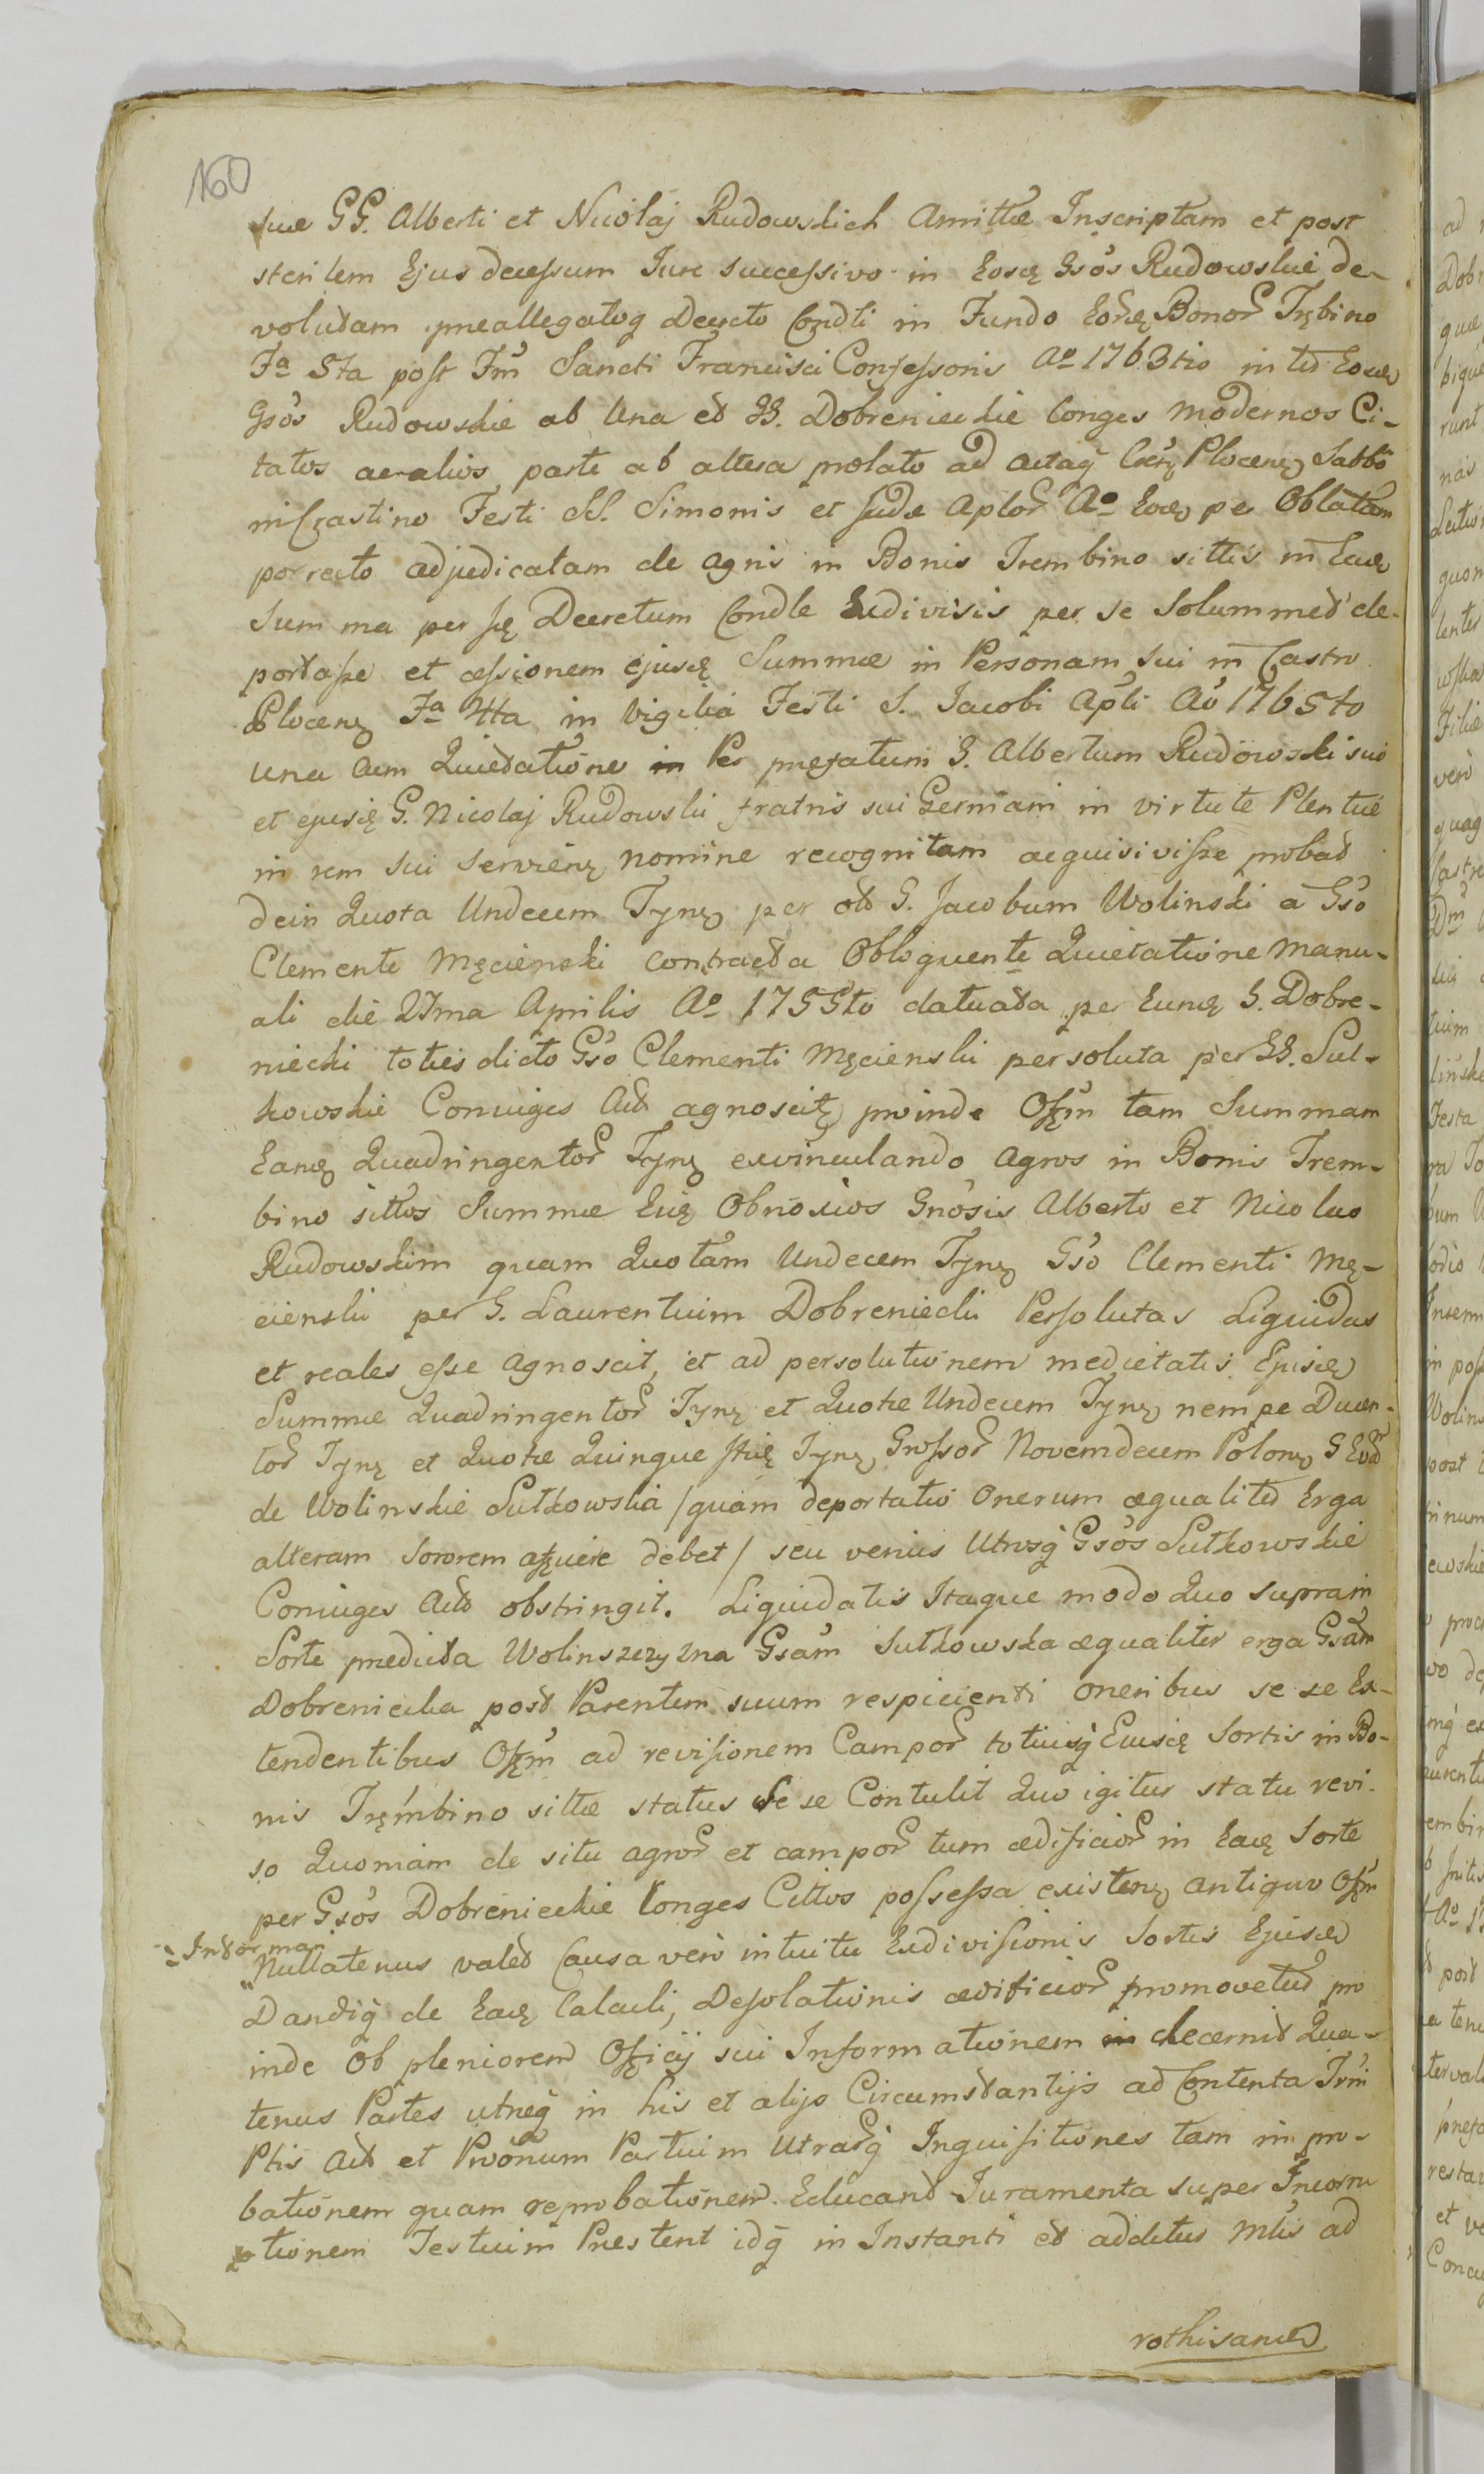 160
suæ GG. Alberti et Nicolaj Rudowskich Amittæ Inscriptam et post
sterilem Ejus decessum Jure successivo in Eosq Gsos Rudowskie de-
volutam præallegatoq Decreto Condti in Fundo Eorq Bonor Trębino
Fa 5ta post Fm Sancti Francisci Confessoris Ao 1763tio inter Eosq
Gsos Rudowskie ab Una et GG. Dobrenieckie Conges modernos Ci-
tatos ac alios parte ab altera prolato ad Actaq Cas Plocens Sabbo
in Crastino Festi SS. Simonis et Judæ Aplor Ao Eod per Oblatam
porrecto adjudicatam de agris in Bonis Trembino sittis in Eade
Summa per se Decretum Condle Exdivisis per se Solummet de-
portasse et cessionem ejusq Summæ in Personam sui in Castro
Plocens Fa 4ta in Vigilia Festi S. Jacobi Apli Ao 1765to
una cum Quietatione Per præfatum G. Albertum Rudowski suo
et ejusq G. Nicolaj Rudowski fratris sui Germani in virtute Plentiæ
in rem sui serviens nomine recognitam acquisivisse probat
dein Quota Undecem Tynf per ol G. Jacobum Wolinski a Gso
Clemente Męcienski contracta Obloquente Quietatione Manu-
ali die 27ma Aprilis Ao 1755to datuata per Eunq G. Dobre-
niecki toties dicto Gso Clementi Męcienski persoluta per GG. Sut-
kowskie Coniuges Act agnoscit proinde Offm tam Summam
Eanq Quadringentor Tynf exvinculando Agros in Bonis Trem-
bino sittos Summæ Eiq Obnoxios Gnosis Alberto et Nicolao
Rudowskim quam Quotam Undecem Tynf Gso Clementi Mę-
cienski per G. Laurentium Dobreniecki Persolutas Liquidas
et reales esse agnoscit, et ad persolutionem medietatis Ejusq
Summæ Quadringentor Tynf et Quotæ Undecem Tynf nempe Ducen-
tor Tynf et Quotæ Quinque Tynf Grossor Novemdecem Polons G
de Wolinskie Sutkowska /quam deportatio Onerum æqualiter Erga
alteram Sororem afficere debet/ seu verius Utrosq Gsos Sutkowskie
Coniuges Act obstringit. Liquidatis Itaque modo Quo supra in
Sorte prædicta Wolinszczyzna Gsam Sutkowska æqualiter erga Gsam
Dobreniecka post Parentem suum respicienti oneribus se se Ex-
tendentibus Offm ad revisionem Campor totiusq Eiusq Sortis in Bo-
nis Trębmino sittæ status Se se Contulit Quo igitur statu revi-
so Quoniam de situ agror et campor tum ædificior in Eaq Sorte
per Gsos Dobrenieckie Conges Cittos possessa existens antiquo Offm
Informari
Nullatenus valet Causa vero intuitu Exdivisionis Sortis Ejusq
Dandiq de Eaq Calculi, Desolationis ædificior promovetur pro
inde Ob pleniorem Officij sui Informationem decernit Qua-
tenus Partes utræq in his et alijs Circumstantijs ad Contenta Trm
Ptis Act et Pnonum Partium Utrarq Inquisitiones tam in pro-
bationem quam reprobationem Educant Juramenta super
tionem Testium Præstent idq in Instanti et additus Mtis ad
rothisandæ